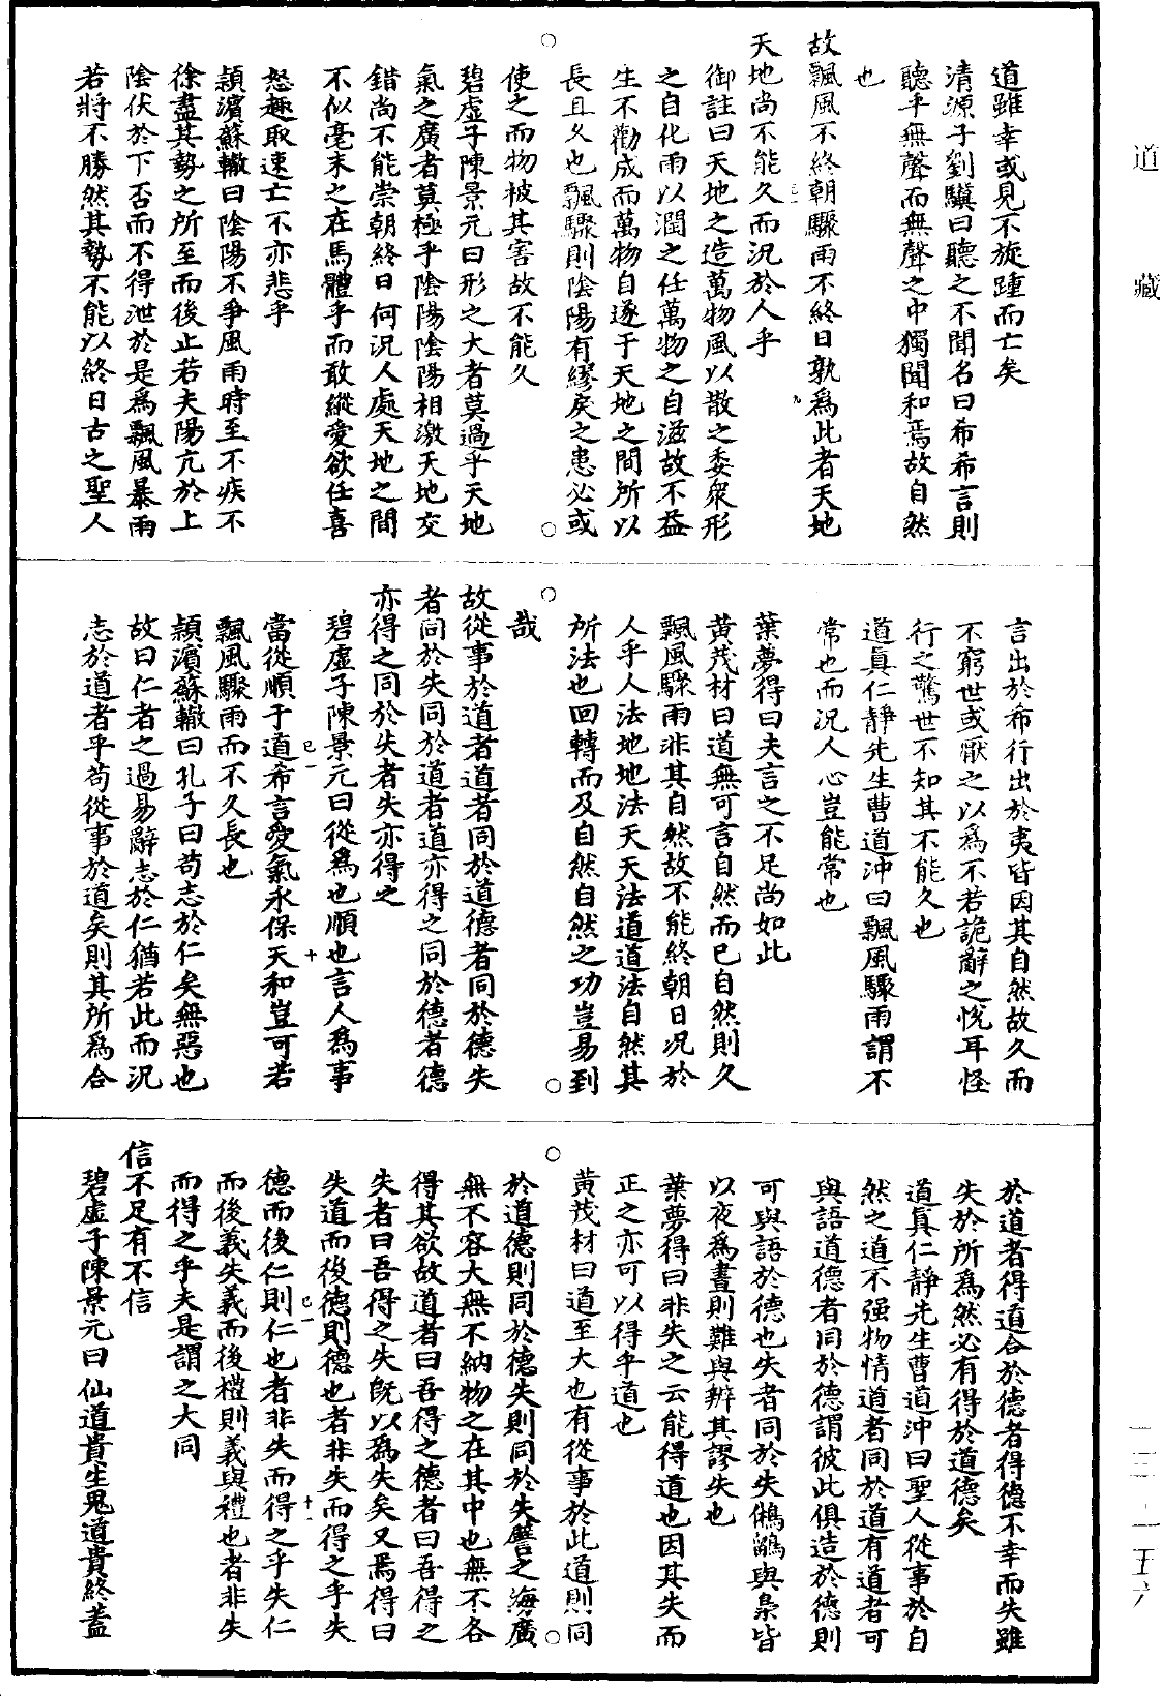 道藏
道雖幸或見不旋踵而亡矣
清源子劉驥曰聽之不聞名曰希希言則
聽乎無聲而無聲之中獨聞和焉故自然
也
故飄風不終朝驟雨不終日孰為此者天地
天地尚不能久而況於人乎
御註曰天地之造萬物風以散之委眾形
之自化雨以潤之任萬物之自滋故不益
生不勸成而萬物自遂于天地之間所以
長且久也飄驟則陰陽有繆戾之患必或
使之而物被其害故不能久
碧虛子陳景元曰形之大者莫過乎天地
氣之廣者莫極乎陰陽陰陽相激天地交
錯尚不能崇朝終日何況人處天地之間
不似毫末之在馬體乎而敢縱愛欲任喜
怒趣取速亡不亦悲乎
潁濱蘇轍曰陰陽不爭風雨時至不疾不
徐盡其勢之所至而後止若夫陽亢於上
陰伏於下否而不得泄於是為飄風暴雨
若將不勝然其勢不能以終日古之聖人
言出於希行出於夷皆因其自然故久而
不窮世或厭之以為不若詭辭之悅耳怪
行之驚世不知其不能久也
道真仁靜先生曹道沖曰飄風驟雨謂不
常也而況人心豈能常也
葉夢得曰夫言之不足尚如此
黃茂材曰道無可言自然而已自然則久
飄風驟雨非其自然故不能終朝日況於
人乎人法地地法天天法道道法自然其
所法也回轉而及自然自然之功豈易到
哉
故從事於道者道者同於道德者同於德失
者同於失同於道者道亦得之同於德者德
亦得之同於失者失亦得之
碧虛子陳景元曰從為也順也言人為事
當從順于道希言愛氣永保天和豈可若
飄風驟雨而不久長也
潁濱蘇轍曰孔子曰苟志於仁矣無惡也
故曰仁者之過易辭志於仁猶若此而況
志於道者乎苟從事於道矣則其所為合
於道者得道合於德者得德不幸而失雖
失於所為然必有得於道德矣
道真仁靜先生曹道沖曰聖人從事於自
然之道不强物情道者同於道有道者可
與語道德者同於德謂彼此俱造於德則
可與語於德也失者同於失鵂鶹與梟皆
以夜為晝則難與辨其謬失也
葉夢得曰非失之云能得道也因其失而
正之亦可以得乎道也
黃茂材曰道至大也有從事於此道則同
於道德則同於德失則同於失譬之海廣
無不容大無不納物之在其中也無不各
得其欲故道者曰吾得之德者曰吾得之
失者曰吾得之失既以為失矣又焉得曰
失道而後德則德也者非失而得之乎失
德而後仁則仁也者非失而得之乎失仁
而後義失義而後禮則義與禮也者非失
而得之乎夫是謂之大同
信不足有不信
碧虛子陳景元曰仙道貴生鬼道貴終蓋